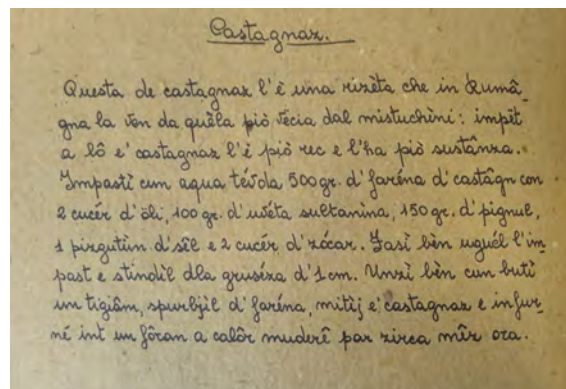 Castagnaz.
Questa de castagnaz l'è una rizèta che in Rumâ-
gna la ven da quèla piò vècia dal mistuchèni: impët
a lô e' castagnaz l'è piò rec e l'ha piò sustânza.
Impastì cun aqua tévda 500 gr. d' faréna d' castâgn con
2 cucér d'öli, 100 gr. d'uvéta sultanina, 150 gr. d' pignul,
1 pizgutin d' sêl e 2 cucér d' zócar. Fasì bèn uguél l'im-
past e stindìl dla gruséza d' 1 cm. Unzì bèn cun butì
un tigiâm, spurbjìl d' faréna, mitìj e' castagnaz e infur-
né int un fóran a calôr muderê par zirca mëz ora.